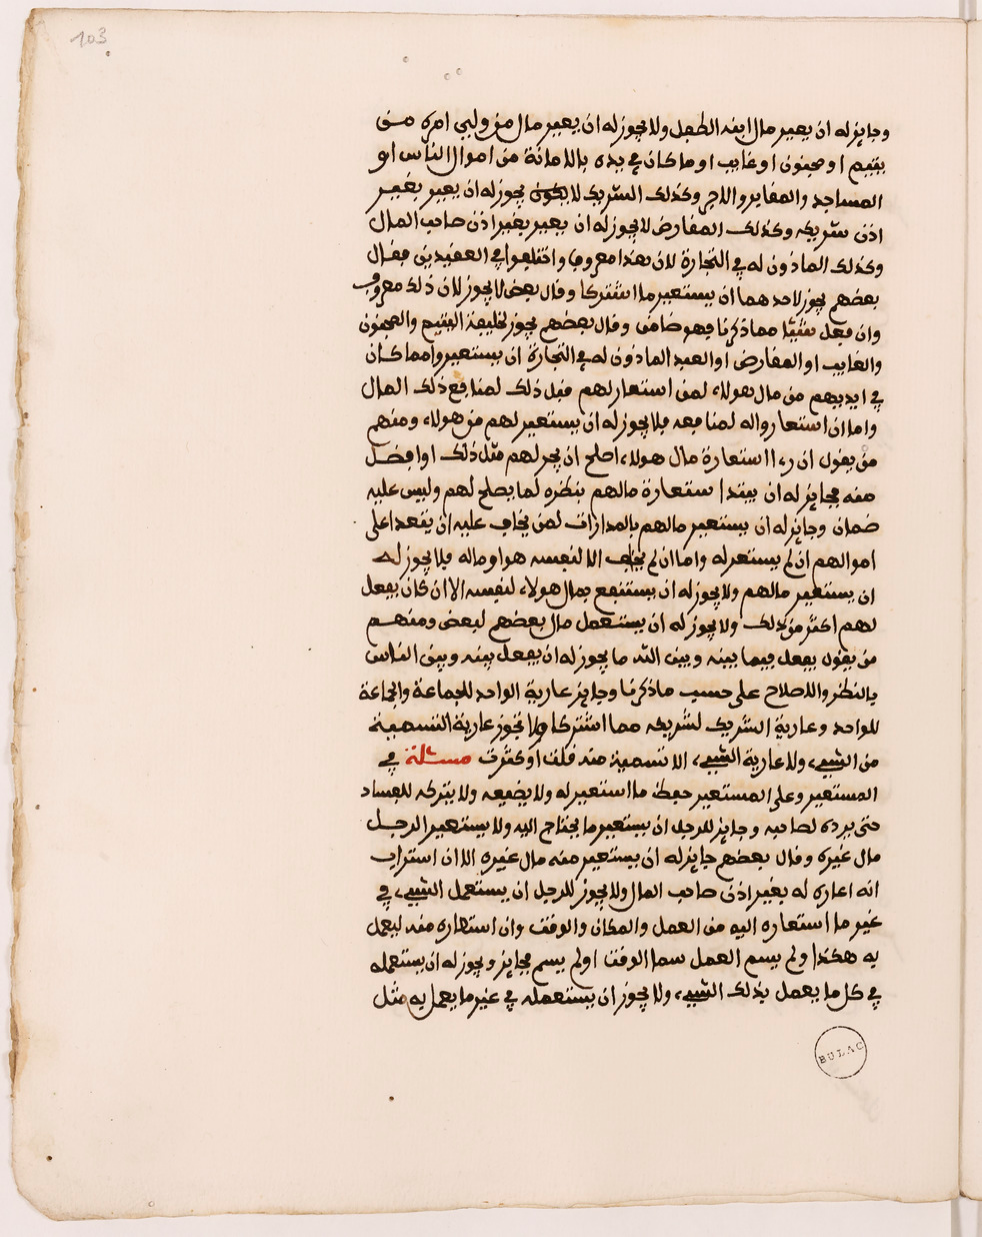 103
وجايز له ان يعير مال ابنه الطفل ولا يجوز له ان يعير مال من ولي امره من
يتيم او مجنون او غايب او ما كان في يده بالامانة من اموال الناس او
المساجد والمقابر والاجر وكذلك الشريك لا يكون يجوز له ان يعير بغير
اذن شريكه وكذلك المقارض لا يجوز له ان يعير بغير اذن صاحب المال
وكذلك الماذون له في التجارة لان هذا معروف واختلفوا في العقيدين فقال
بعضهم يجوز لاحدهما ان يستعير ما اشتركا وقال بعض لا يجوز لان ذلك معروف
وان فعل شيئا مما ذكرنا فهو ضامن وقال بعضهم يجوز لخليفة اليتيم والمجنون
والغايب او المقارض او العبد الماذون له في التجارة ان يستعيروا مما كان
في ايديهم من مال هولاء لمن استعار لهم قبل ذلك لمنافع ذلك المال
واما ان استعاروا له لمنافعه فلا يجوز له ان يستعير لهم من هولاء ومنهم
من يقول ان رءا استعارة مال هولاء اصلح ان يجر لهم مثل ذلك او افضل
منه فجايز له ان يبتدا ستعارة مالهم بنظره لما يصلح لهم وليس عليه
ضمان وجايز له ان يستعير مالهم بالمدارات لمن يخاف عليه ان يتعدا على
اموالهم ان لم يستعر له واما ان لم يخف الا لنفسه هو او ماله فلا يجوز له
ان يستعير مالهم ولا يجوز له ان يستنفع بمال هولاء لنفسه الا ان كان يفعل
لهم اكثر من ذلك ولا يجوز له ان يستعمل مال بعضهم لبعض ومنهم
من يقول يفعل فيما بينه وبين الله ما يجوز له ان يفعل بينه وبين الناس
بالنظر والاصلاح على حسب ما ذكرنا وجايز عارية الواحد للجماعة والجماعة
للواحد وعارية الشريك لشريكه مما اشتركا ولا تجوز عارية التسمية
من الشيء ولا عارية الشيء الا تسمية منه قلت او كثرت مسئلة في
المستعير وعلى المستعير حفظ ما استعير له ولا يضيعه ولا يتركه للفساد
حتى يرده لصاحبه وجايز للرجل ان يستعير ما يحتاج اليه ولا يستعير الرجل
مال غيره وقال بعضهم جايز له ان يستعير منه مال غيره الا ان استراب
انه اعاره له بغير اذن صاحب المال ولا يجوز للرجل ان يستعمل الشيء في
غير ما استعاره اليه من العمل والمكان والوقت وان استعاره منه ليعمل
به هكذا ولم يسم العمل سما الوقت او لم يسم فجايز ويجوز له ان يستعمله
في كل ما يعمل بذلك الشيء ولا يجوز ان يستعمله في غير ما يعمل به مثل
BULAC